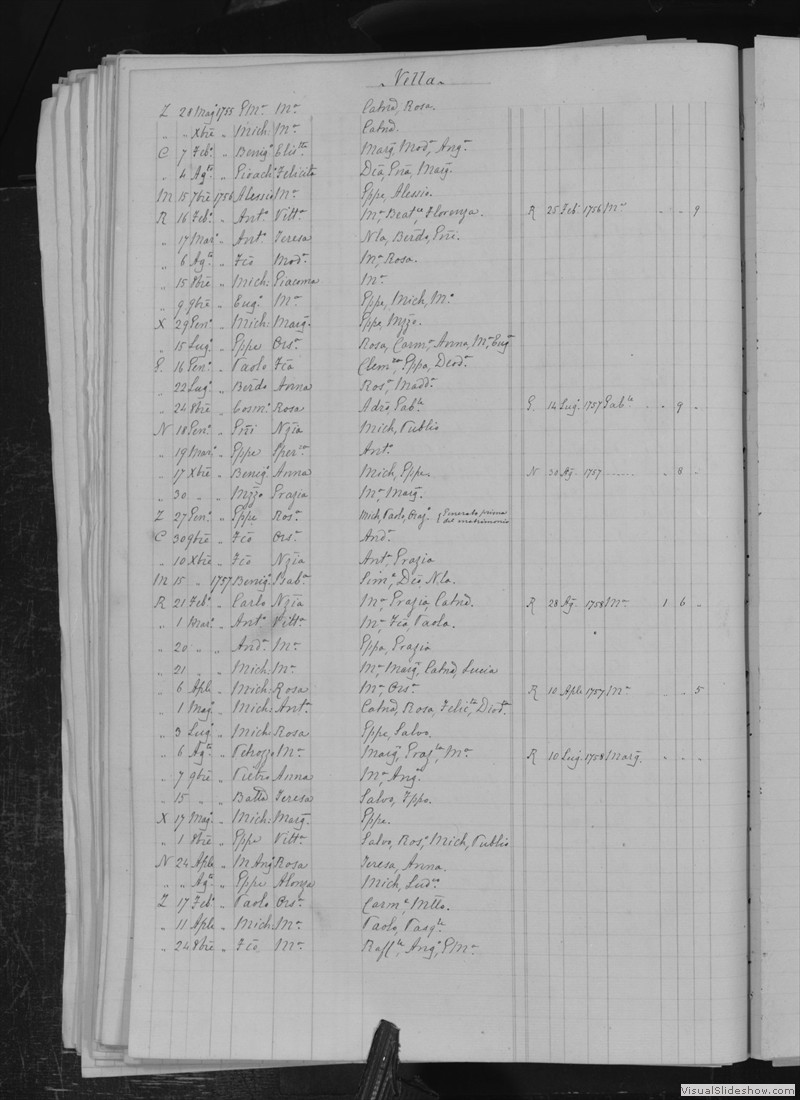 Villa
Z 28 Mag. 1755 GMa Ma Catnd, Rosa.
" " Xbre " Mich: Ma Catnd.
C 7 Feb.o " Benig.o Elis.tta Marg, Mod.a, Ang.a
" 4 Ag.to " Gioach: Felicita Dca, Gna, Marg.
M 15 7bre 1756 Alessio Ma Gppe, Alessio.
R 16 Feb.o " Ant.o Vitt.a Ma, Beat.ce, Florenza. R 25 Feb. 1756 Ma " " 9
" 17 Mar.o " Ant.o Teresa Nla, Berdo, Gni.
" 6 Ag.to " Fco Mod.a Ma, Rosa.
" 15 8bre " Mich: Giacoma Ma
" 9 9bre " Eug.o Ma Gppe, Mich, M.o
X 29 Gen.o " Mich: Marg. Gppa, Mzzo.
" 15 Lug.o " Gppe Ors.a Rosa, Carm.a, Anna, Ma, Eug.a
G. 16 Gen.o " Paolo Fca Clem.za, Gppa, Deod.a
" 22 Lug.o " Berdo Anna Ros.a, Madd.a
" 24 8bre " Cosm.o Rosa Adro, Gab.le G. 14 Lug.o 1757 Gab.le " 9 "
N 18 Gen.o " Gni Nzia Mich, Publio
" 19 Mar.o " Gppe Sper.za Ant.o
" 17 Xbre " Benig.o Anna Mich, Gppe. N 30 Ag. 1757 " 8 "
" 30 " " Mzzo Grazia Ma, Marg.
Z 27 Gen.o " Gppe Ros.a Mich, Paolo, Oraz.o (Generato prima del matrimonio
C 30 9bre " Fco Ors.a And.a
" 10 Xbre " Fco Nzia Ant.a, Grazia
M 15 " 1757 Benig.o Isab.a Sim.e, Dco, Nla.
R 21 Feb.o " Carlo Nzia Ma, Grazia, Catnd. R 28 Ag. 1758 Ma 1 6 "
" 1 Mar.o " Ant.o Vitt.a Ma, Fca, Paola.
" 20 " " And.a Ma Gppa, Grazia
" 21 " " Mich: Ma Ma, Marg, Catnd, Lucia
" 6 Aple " Mich: Rosa Ma, Ors.a R 10 Aple 1757 Ma " " 5
" 1 Mag.o " Mich: Ant.a Catnd, Rosa, Felic.ta, Diod.ta
" 3 Lug.o " Mich: Rosa Gppe, Salvo.
" 6 Ag.to " Petrozzo Ma Marg, Graz.lla, Ma R 10 Lug. 1758 Marg. " " "
" 7 9bre " Pietro Anna Ma, Ang.ca
" 15 " " Batta Teresa Salvo, Gppe.
X 17 Mag.o " Mich: Marg. Gppe.
" 1 8bre " Gppe Vitt.a Salvo, Ros.o, Mich, Publio
N 24 Aple " MAng.o Rosa Teresa, Anna.
" " Ag.to " Gppe Alonza Mich, Lud.co
Z 17 Feb.o " Paolo Ors.a Carm.e, Mtto.
" 11 Aple " Mich: Ma Paolo, Pasq.le
" 24 8bre " Fco Ma Raff.le, Ang.o, GMa
VisualSlideshow.com